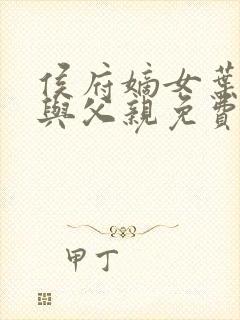 侯府嫡女葉
與父親免費
甲丁